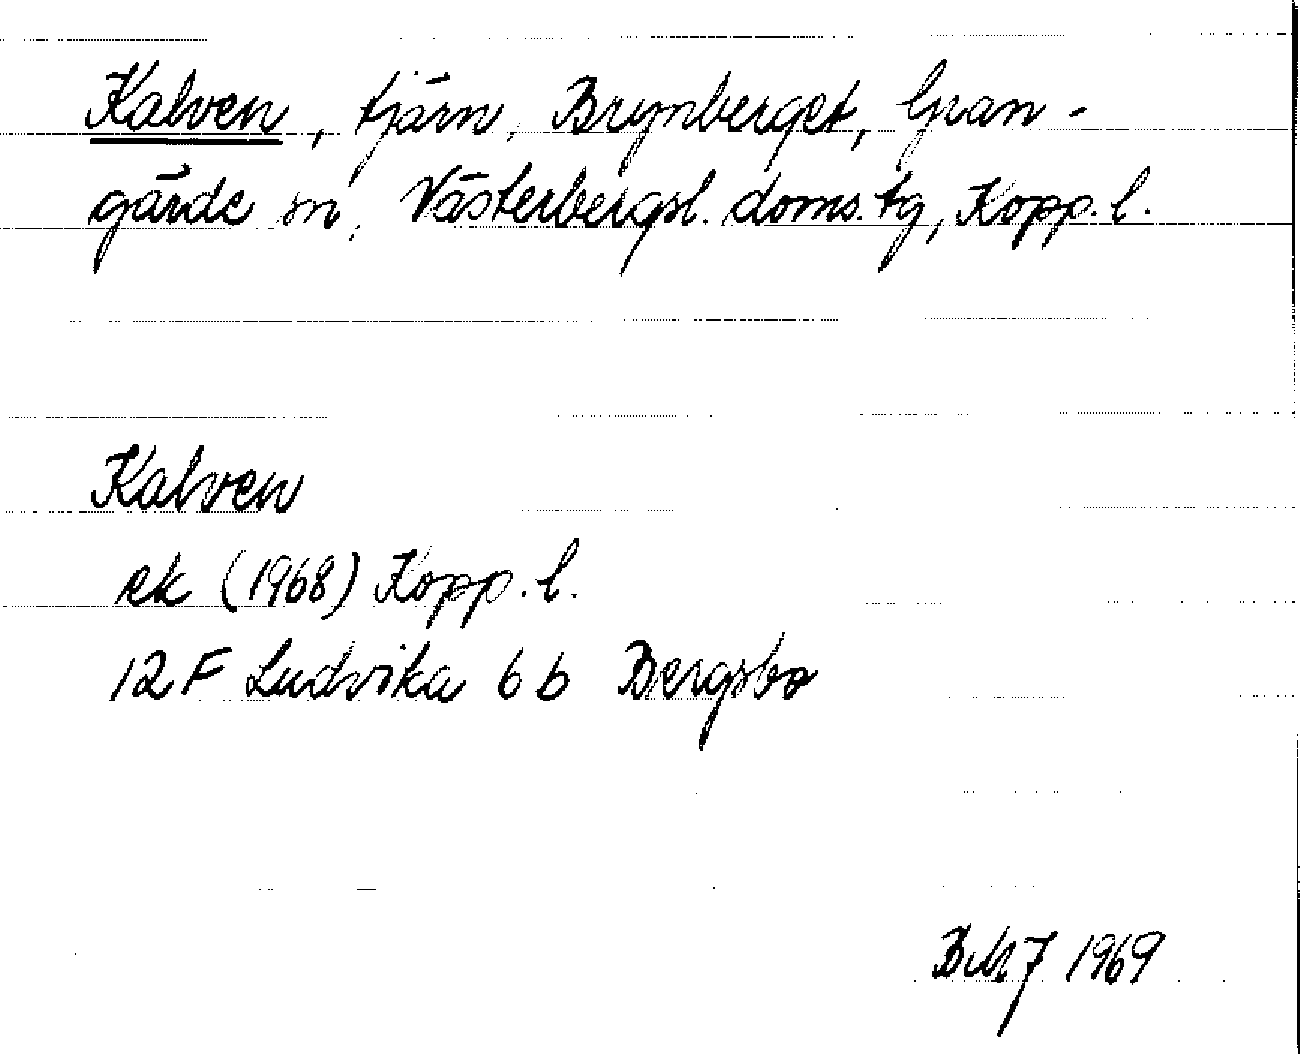 Kalven, tjärn, Brynberget, Gran-
gärde sn, Västerbergsl. doms. tg, Kopp. l.
Kalven
ek (1968) Kopp. l.
12 F Ludvika 6 b Bergsbo
1969